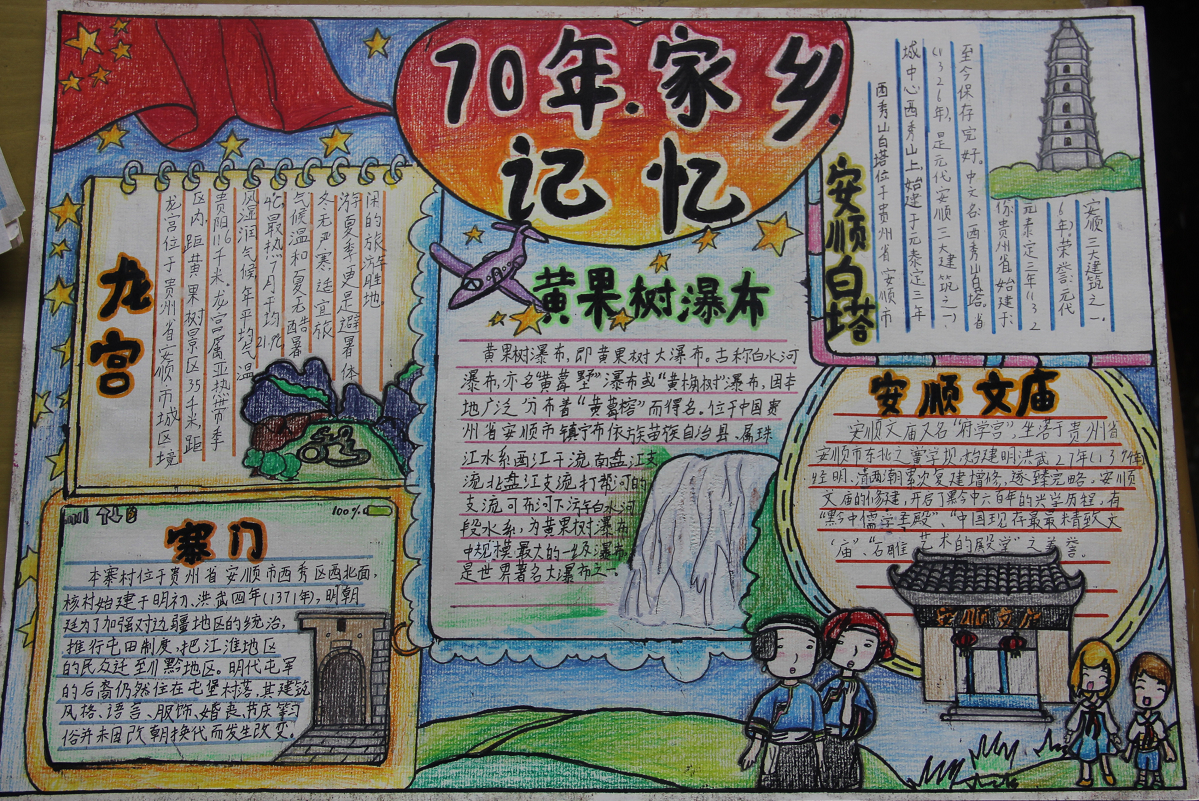 70年.家乡.
记忆
龙宫
龙宫位于贵州省安顺市城区境
区内,距黄果树景区35千米,距
贵阳116千米。龙宫属亚热带季
风湿润气候,年平均气温
最热7月,平均21.9℃
气候温和夏无酷暑
冬无严寒,适宜旅
游,夏季更是避暑休
闲的旅游胜地
龙
寨门
100%
本寨村位于贵州省安顺市西秀区西北面,
核村始建于明初、洪武四年(1371年),明朝
廷为了加强对边疆地区的统治,
推行屯田制度,把江淮地区
的民众迁至川黔地区。明代屯军
的后裔仍然住在屯堡村落,其建筑
风格、语言、服饰、婚丧、节庆等习
俗并未因改朝换代而发生改变。
黄果树瀑布
黄果树瀑布,即黄果树大瀑布。古称白水河
瀑布,亦名"黄葛墅"瀑布或"黄桷树"瀑布,因本
地广泛分布着"黄葛榕"而得名。位于中国贵
州省安顺市镇宁布依族苗族自治县,属珠
江水系西江干流南盘江支
流北盘江支流打帮河的
支流可布河下游白水河
段水系,为黄果树瀑布
中规模最大的一级瀑布
是世界著名大瀑布之一。
安顺白塔
西秀山白塔位于贵州省安顺市
城中心西秀山上,始建于元泰定三年
(1326年),是元代安顺三大建筑之一,
至今保存完好。中文名:西秀山白塔。省
份:贵州省,始建于:
元泰定三年(132
6年)荣誉:元代
安顺三大建筑之一,
安顺文庙
安顺文庙又名"府学宫",坐落于贵州省
安顺市东北之黉学坝,始建明洪武27年(1394年
经明、清两朝累次复建增修,遂臻完略,安顺
文庙的修建,开启了黔中六百年的兴学历程,有
"黔中儒学圣殿"、"中国现存最最精致文
庙"、"石雕 艺术的殿堂"之美誉。
安顺文庙